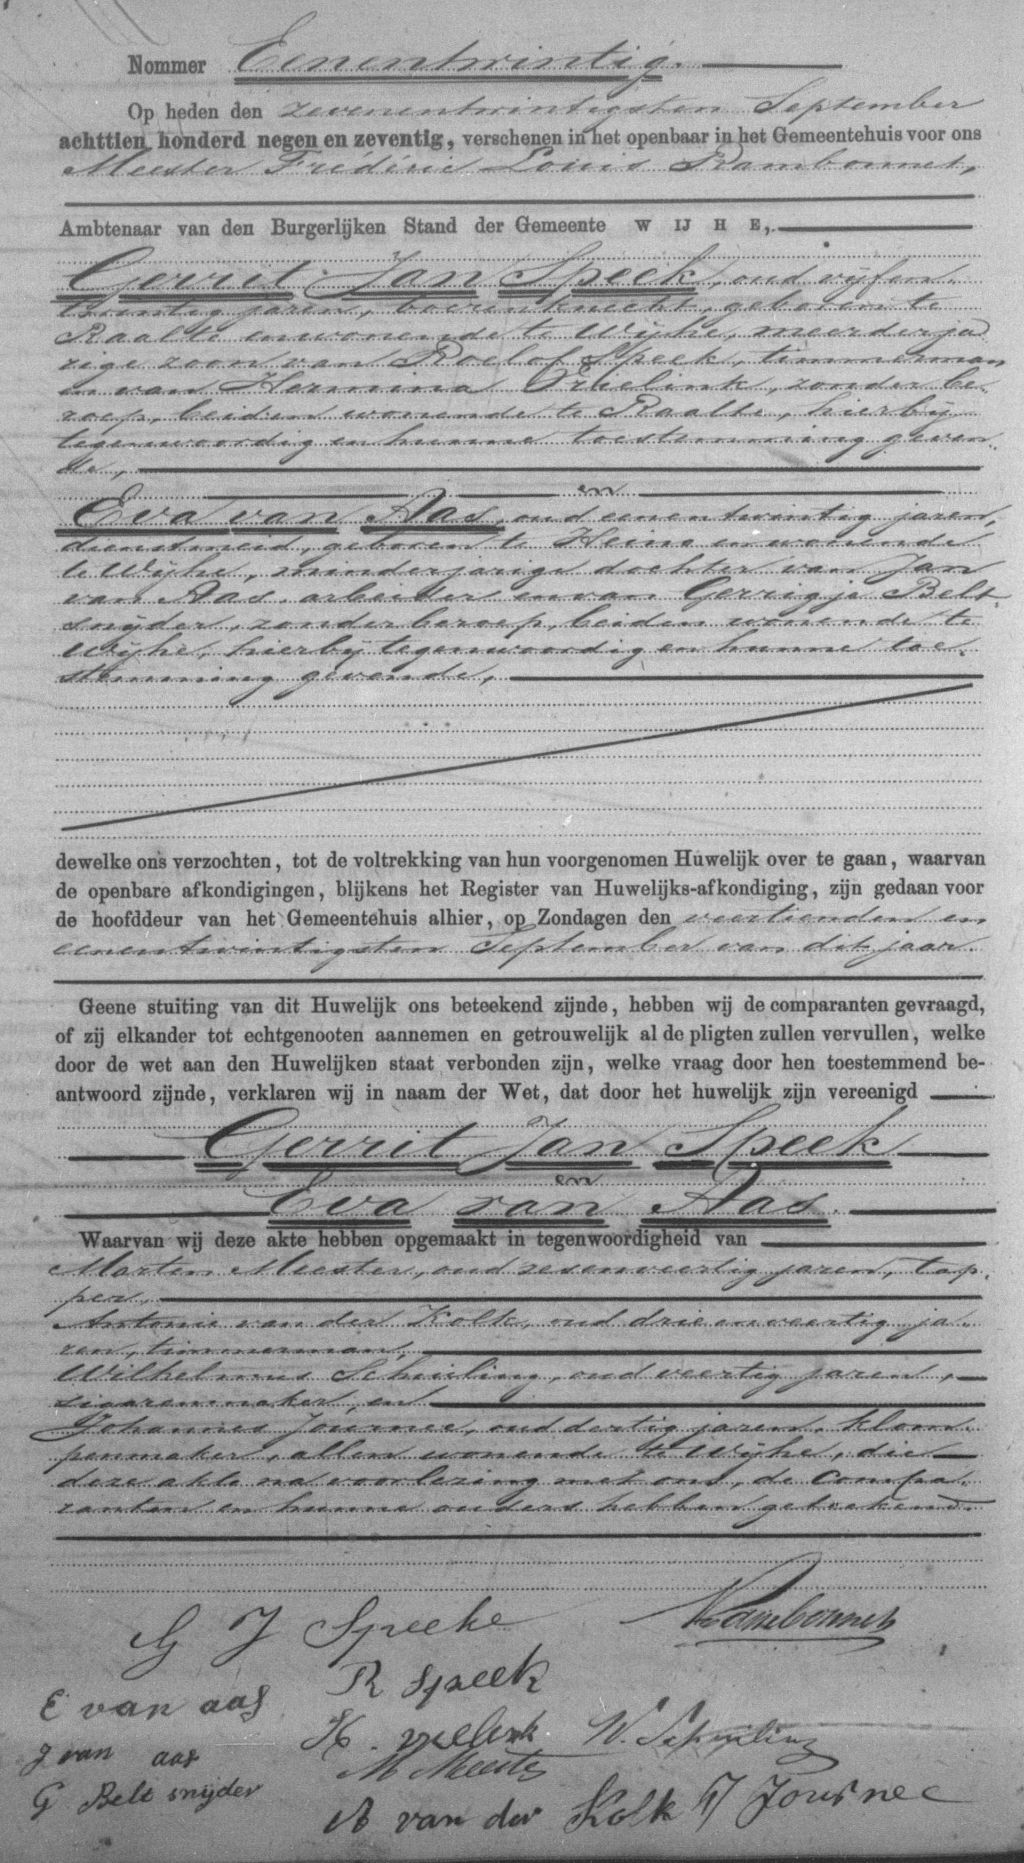 Nommer Eenentwintig.
Op heden den zevenentwintigsten September
achttien honderd negen en zeventig, verschenen in het openbaar in het Gemeentehuis voor ons
Meester Frédéric Louis Rambonnet,
Ambtenaar van den Burgerlijken Stand der Gemeente WIJHE,
Gerrit Jan Speek, oud vijfen
twintig jaren, boerenknecht, geboren te
Raalte en wonende te Wijhe, meerderja
rige zoon van Roelof Speek, timmerman
en van Hermina, zonder be-
roep, beiden wonende te Raalte, hierbij
tegenwoordig en hunne toestemming geven
de,
en
Eva van Aas, oud eenentwintig jaren,
dienstmeid, geboren te Heino en wonende
te Wijhe, minderjarige dochter van Jan
van Aas, arbeider en van Gerrigje Belt
snijder, zonder beroep, beiden wonende te
Wijhe, hierbij tegenwoordig en hunne toe-
stemming gevende,
dewelke ons verzochten, tot de voltrekking van hun voorgenomen Huwelijk over te gaan, waarvan
de openbare afkondigingen, blijkens het Register van Huwelijks-afkondiging, zijn gedaan voor
de hoofddeur van het Gemeentehuis alhier, op Zondagen den veertienden en
eenentwintigsten September van dit jaar.
Geene stuiting van dit Huwelijk ons beteekend zijnde, hebben wij de comparanten gevraagd,
of zij elkander tot echtgenooten aannemen en getrouwelijk al de pligten zullen vervullen, welke
door de wet aan den Huwelijken staat verbonden zijn, welke vraag door hen toestemmend be-
antwoord zijnde, verklaren wij in naam der Wet, dat door het huwelijk zijn vereenigd
Gerrit Jan Speek
en
Eva van Aas.
Waarvan wij deze akte hebben opgemaakt in tegenwoordigheid van
Marten Meester, oud zesenveertig jaren, tap-
per,
Antonie van der Kolk, oud drieenveertig ja-
ren, timmerman,
Wilhelmus Schuiling, oud veertig jaren,
sigarenmaker, en
Johannes Journee, oud dertig jaren, klom-
penmaker, allen wonende te Wijhe, die
deze akte na voorlezing met ons, de compa-
ranten en hunne ouders hebben geteekend.
G J Speeke Rambonnet
R Speek
E van aas
H. W. Schuiling
J van aas
M Meester
G Belt snijder
A van der Kolk J Journee